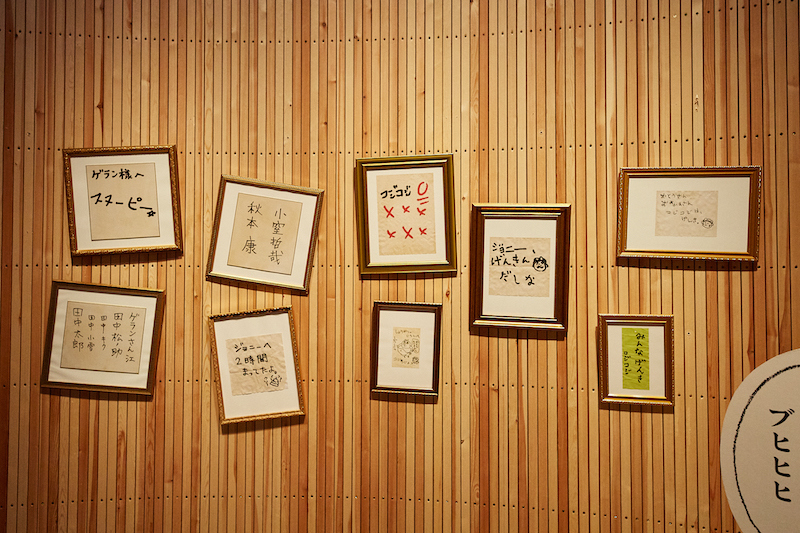 ゲラン様へ
スヌーピー
小室哲哉
秋本 康
コジコジ 0
× × ×
× × ×
ジョニー、
げんきん
だしな
コジコジは、
げんき。
ゲランさん江
田中松ノ助
田中小雪
田中太郎
ジョニーへ
2時間
まってたよ。
みんなげんき
コジコジ
ブヒヒヒ